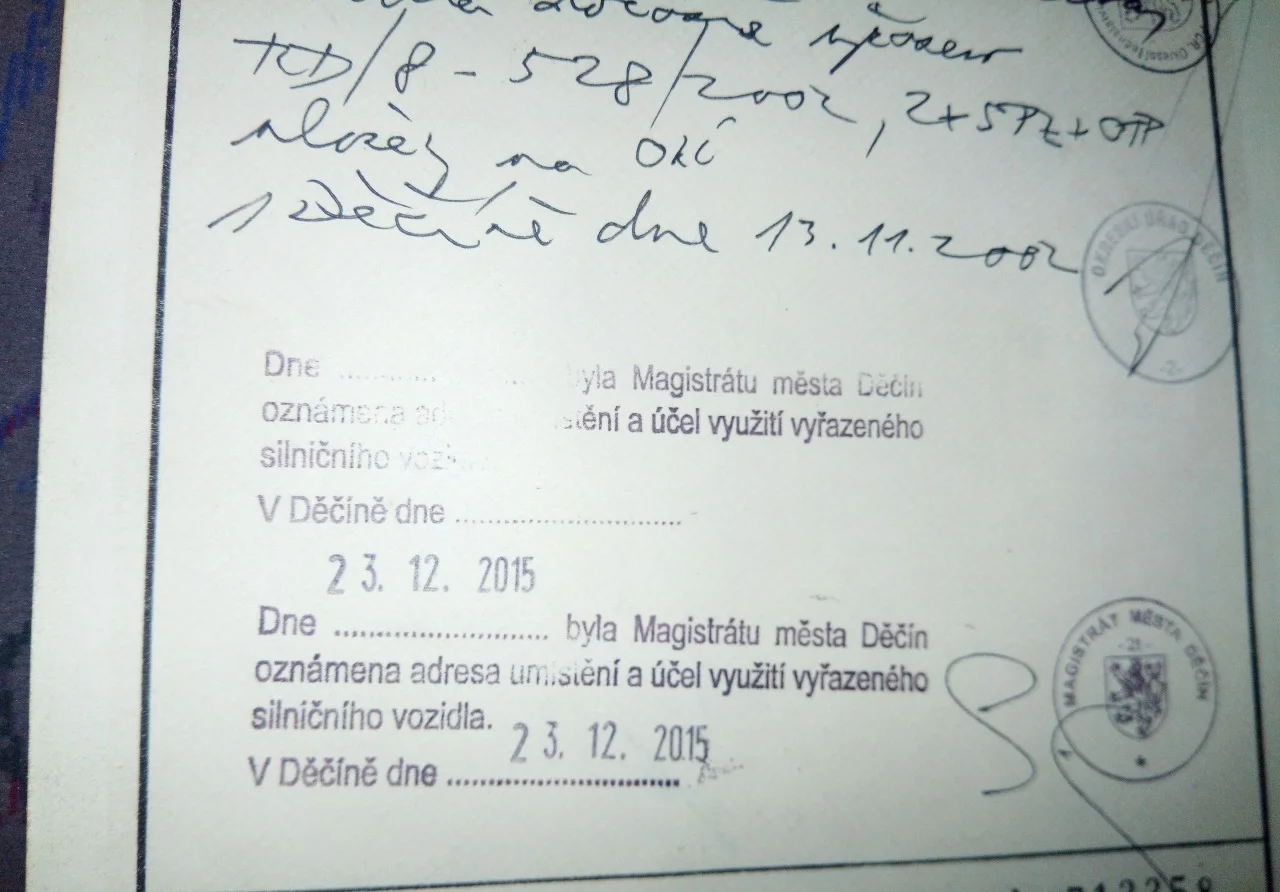 TCD/8 - 528/2002, 2+SPZ+OTP
uloženy na OKÍ
V Děčíně dne 13.11.2002
OKRESNÍ ÚŘAD DĚČÍN
Dne ............ byla Magistrátu města Děčín
oznámena ad ění a účel využití vyřazeného
silničního vozi
V Děčíně dne ..............................
23. 12. 2015
Dne ............................ byla Magistrátu města Děčín
oznámena adresa umístění a účel využití vyřazeného
silničního vozidla.
23. 12. 2015
V Děčíně dne ..............................
MAGISTRÁT MĚSTA DĚČÍN